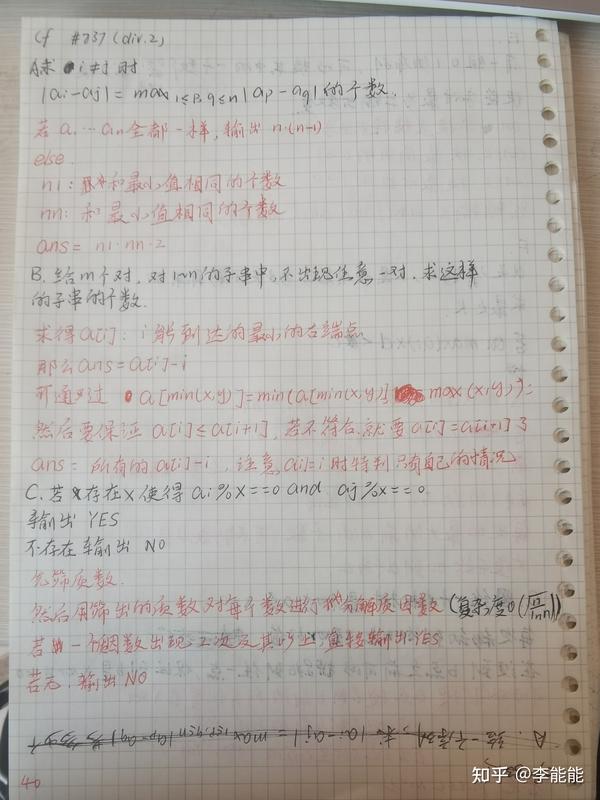 Cf #837 (div.2)
A求 i≠j 时
|ai-aj| = max 1≤p,q≤n |ap-aq| 的个数.
若 a1…an全都一样,输出 n·(n-1)
else
n1: 和最小值相同的个数
nn: 和最小值相同的个数
ans = n1·nn·2
B. 给m个对, 对1~n的子串中,不出现任意一对. 求这样
的子串的个数.
求得a[i]: i能到达的最小的右端点
那么ans=a[i]-i
可通过 a[min(x,y)]=min(a[min(x,y)], max(x,y));
然后要保证 a[i]≤a[i+1], 若不符合,就要a[i]=a[i+1]了
ans= 所有的a[i]-i ,注意a[i]=i时特判只有自己的情况
C. 若存在x使得 ai%x==0 and aj%x==0
输出 YES
不存在输出 NO
先筛质数.
然后用筛出的质数对每个数进行分解质因数(复杂度O(
若一个因数出现2次及其以上直接输出YES
若无,输出NO
A. 给一个序列, 求 |ai-aj| = max 1≤p,q≤n |ap-aq|
40
知乎 @李能能